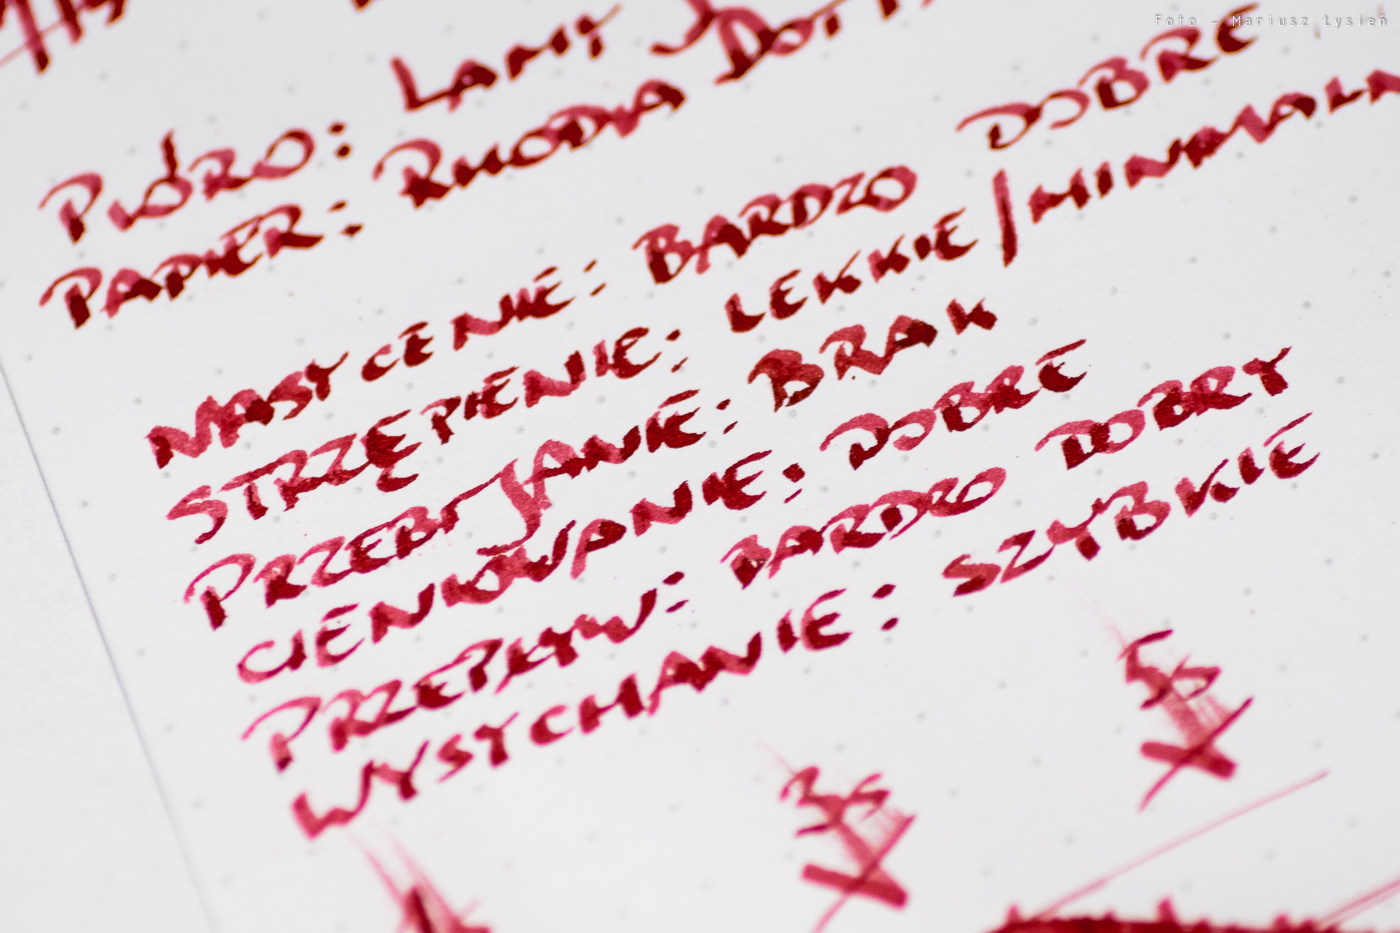 Foto - Mariusz Łysień
PIÓRO: LAMY
PAPIER: RHODIA DOT
NASYCENIE: BARDZO DOBRE
STRZĘPIENIE: LEKKIE/MINIMALN
PRZEBIJANIE: BRAK
CIENIOWANIE: DOBRE
PRZEPŁYW: BARDZO DOBRY
WYSYCHANIE: SZYBKIE
3s 5s